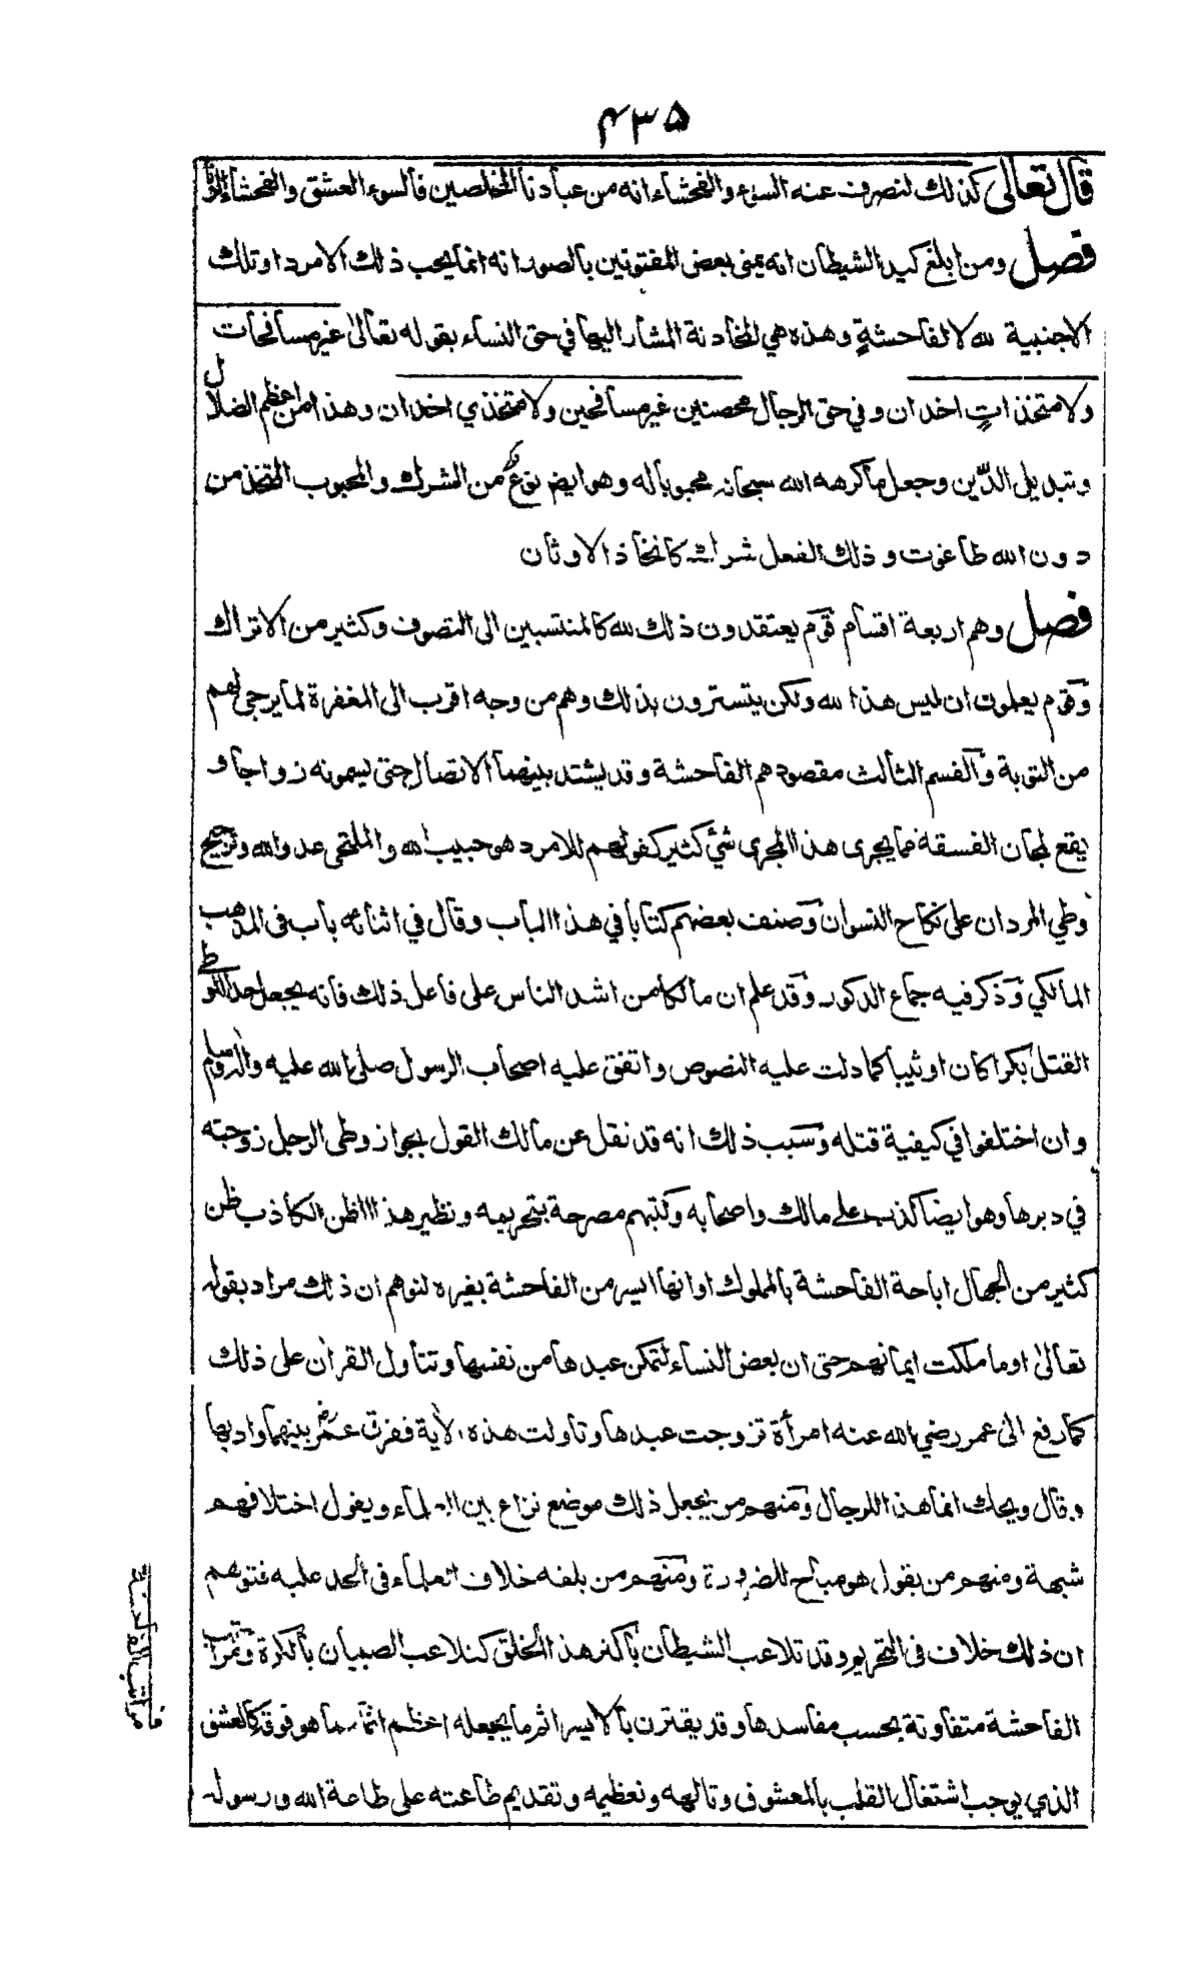 ۴۳۵
قال تعالى كذلك لنصرف عنه السوء والفحشاء انه من عبادنا المخلصين فالسوء العشق والفحشاء الزنا
فصل ومن ابلغ كيد الشيطان انه يمنى بعض المفتونين بالصور انه انما يحب ذلك الامرد او تلك
الاجنبية لله لا لفاحشةٍ وهذه هي المخادنة المشار اليها في حق النساء بقوله تعالى غير مسافحات
ولا متخذاتِ اخدان وفي حق الرجال محصنين غير مسافحين ولا متخذي اخدان وهذا من اعظم الضلال
وتبديل الدّين وجعل ما كرهه الله سبحانه محبوبا له وهو ايضا نوع من الشرك والمحبوب المتخذ من
دون الله طاغوت وذلك الفعل شرك كاتخاذ الاوثان
فصل وهم اربعة اقسام قوم يعتقدون ذلك لله كالمنتسبين الى التصوف وكثير من الاتراك
وقوم يعلمون ان ليس هذا لله ولكن يتسترون بذلك وهم من وجه اقرب الى المغفرة لما يرجى لهم
من التوبة والقسم الثالث مقصودهم الفاحشة وقد يشتد بينهما الاتصال حتى يسمونه زواجا و
يقع لمجان الفسقة مما يجرى هذا المجرى شئ كثير كقولهم للامرد هو حبيب الله والملتحى عدو الله وترجيح
وطي المردان على نكاح النسوان وصنف بعضهم كتابا في هذا الباب وقال في اثنائه باب فى المذهب
المالكي وذكر فيه جماع الذكور وقد علم ان مالكا من اشد الناس على فاعل ذلك فانه يجعل حد اللوطي
القتل بكرا كان او ثيبا كما دلت عليه النصوص واتفق عليه اصحاب الرسول صلى الله عليه واله وسلم
وان اختلفوا في كيفية قتله وسبب ذلك انه قد نقل عن مالك القول بجواز وطى الرجل زوجته
في دبرها وهو ايضا كذب على مالك واصحابه وكتبهم مصرحة بتحريمه ونظير هذا الظن الكاذب ظن
كثير من الجهال اباحة الفاحشة بالمملوك او انها ايسر من الفاحشة بغيره لتوهم ان ذلك مراد بقوله
تعالى او ما ملكت ايمانهم حتى ان بعض النساء لتمكن عبدها من نفسها وتتاول القران على ذلك
كما رفع الى عمر رضي الله عنه امرأة تزوجت عبدها وتاولت هذه الاية ففرق عمر بينهما وادبها
وقال ويحك انما هذا للرجال ومنهم من يجعل ذلك موضع نزاع بين العلماء ويقول اختلافهم
شبهة ومنهم من يقول هو مباح للضرورة ومنهم من بلغه خلاف العلماء في الحد عليه فتوهم
ان ذلك خلاف في التحريم وقد تلاعب الشيطان باكثر هذا الخلق كتلاعب الصبيان بالكرة ومراتب
الفاحشة متفاوتة بحسب مفاسدها وقد يقترن بالايسر اثم ما يجعله اعظم اثما مما هو فوقه كالعشق
الذي يوجب اشتغال القلب بالمعشوق وتالهه وتعظيمه وتقديم طاعته على طاعة الله ورسوله
مراتب الفاحشة